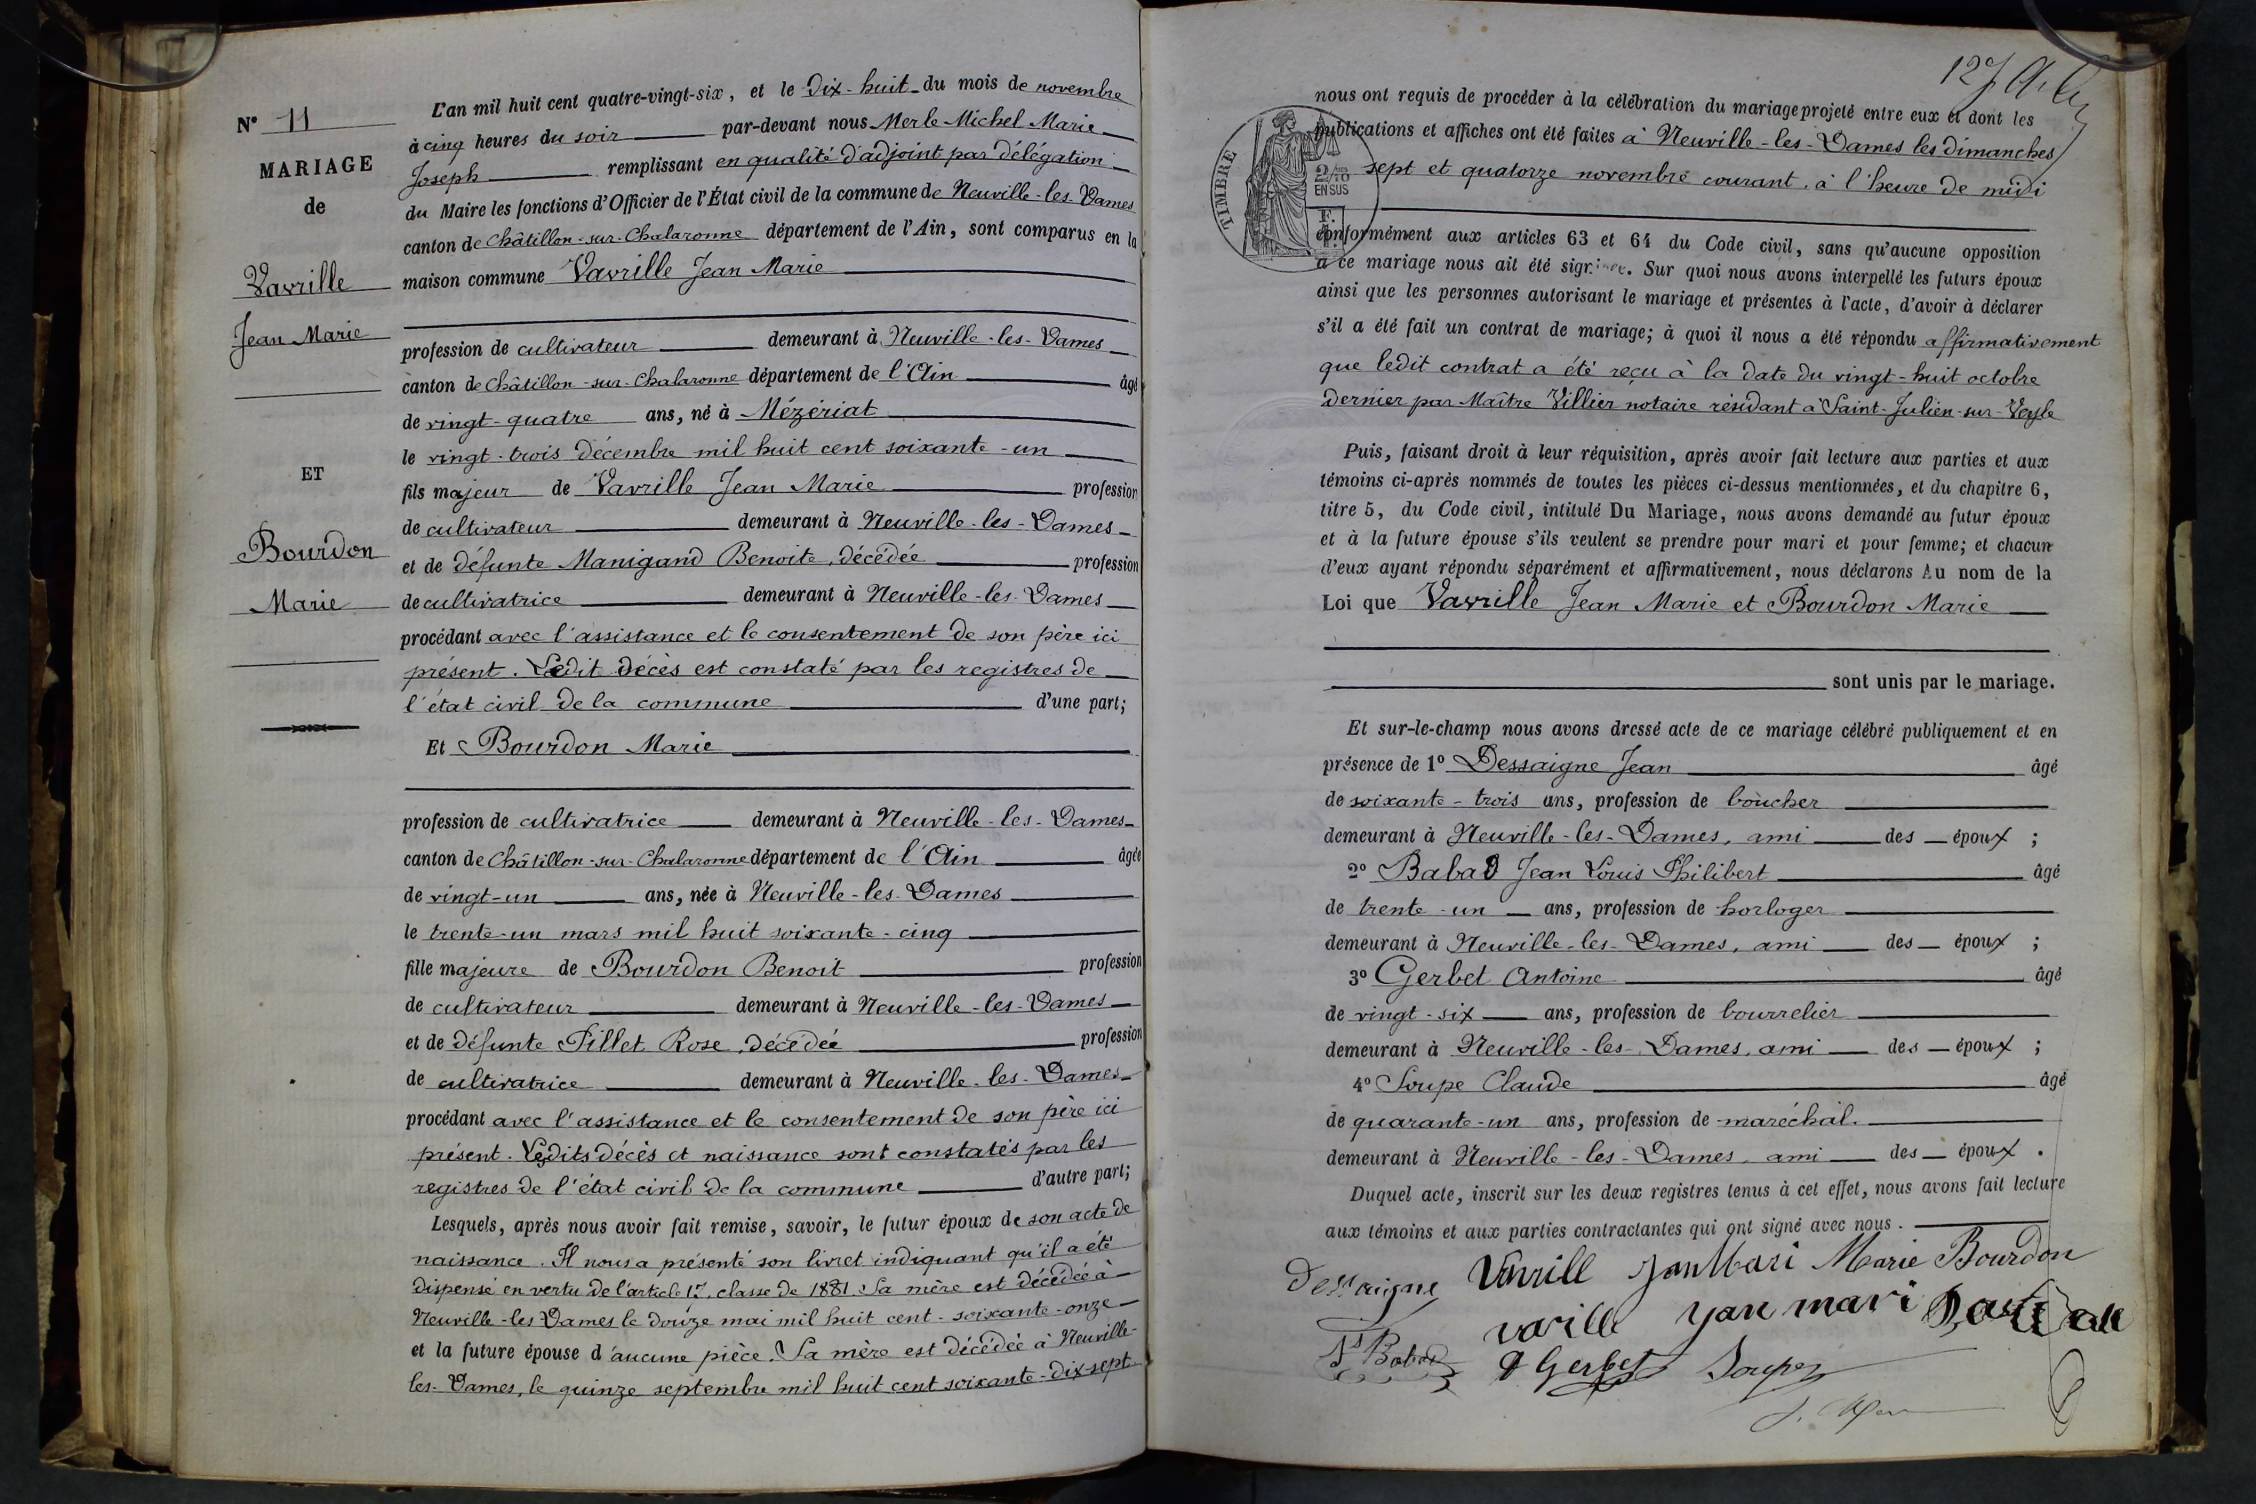 N° 11
MARIAGE
de
Vavrille
Jean Marie
ET
Bourdon
Marie
L'an mil huit cent quatre-vingt-six, et le dix-huit du mois de novembre
à cinq heures du soir par-devant nous Merle Michel Marie
Joseph remplissant en qualité d'adjoint par délégation
du Maire les fonctions d'Officier de l'État civil de la commune de Neuville-les-Dames
canton de Châtillon-sur-Chalaronne département de l'Ain, sont comparus en la
maison commune Vavrille Jean Marie
profession de cultivateur demeurant à Neuville-les-Dames
canton de Châtillon-sur-Chalaronne département de l'Ain âgé
de vingt-quatre ans, né à Mézériat
le vingt-trois décembre mil huit cent soixante-un
fils majeur de Vavrille Jean Marie profession
de cultivateur demeurant à Neuville-les-Dames
et de défunte Manigand Benoite, décédée profession
de cultivatrice demeurant à Neuville-les-Dames
procédant avec l'assistance et le consentement de son père ici
présent. Ledit décès est constaté par les registres de
l'état civil de la commune d'une part;
Et Bourdon Marie
profession de cultivatrice demeurant à Neuville-les-Dames
canton de Châtillon-sur-Chalaronne département de l'Ain âgée
de vingt-un ans, née à Neuville-les-Dames
le trente-un mars mil huit soixante-cinq
fille majeure de Bourdon Benoit profession
de cultivateur demeurant à Neuville-les-Dames
et de défunte Pillet Rose, décédée profession
de cultivatrice demeurant à Neuville-les-Dames
procédant avec l'assistance et le consentement de son père ici
présent. Lesdits décès et naissance sont constatés par les
registres de l'état civil de la commune d'autre part;
Lesquels, après nous avoir fait remise, savoir, le futur époux de son acte de
naissance. Il nous a présenté son livret indiquant qu'il a été
dispensé en vertu de l'article 17, classe de 1881. Sa mère est décédée à
Neuville-les-Dames le douze mai mil huit cent-soixante-onze
et la future épouse d'aucune pièce. Sa mère est décédée à Neuville-
les-Dames, le quinze septembre mil huit cent soixante-dix-sept
127
TIMBRE
2/10
EN SUS
nous ont requis de procéder à la célébration du mariage projeté entre eux et dont les
publications et affiches ont été faites à Neuville-les-Dames les dimanches
sept et quatorze novembre courant, à l'heure de midi
conformément aux articles 63 et 64 du Code civil, sans qu'aucune opposition
à ce mariage nous ait été signifiée. Sur quoi nous avons interpellé les futurs époux
ainsi que les personnes autorisant le mariage et présentes à l'acte, d'avoir à déclarer
s'il a été fait un contrat de mariage; à quoi il nous a été répondu affirmativement
que ledit contrat a été reçu à la date du vingt-huit octobre
dernier par Maître Villier notaire résidant à Saint-Julien-sur-Veyle
Puis, faisant droit à leur réquisition, après avoir fait lecture aux parties et aux
témoins ci-après nommés de toutes les pièces ci-dessus mentionnées, et du chapitre 6,
titre 5, du Code civil, intitulé Du Mariage, nous avons demandé au futur époux
et à la future épouse s'ils veulent se prendre pour mari et pour femme; et chacun
d'eux ayant répondu séparément et affirmativement, nous déclarons Au nom de la
Loi que Vavrille Jean Marie et Bourdon Marie
sont unis par le mariage.
Et sur-le-champ nous avons dressé acte de ce mariage célébré publiquement et en
présence de 1° Dessaigne Jean âgé
de soixante-trois ans, profession de boucher
demeurant à Neuville-les-Dames, ami des époux ;
2° Babad Jean Louis Philibert âgé
de trente-un ans, profession de horloger
demeurant à Neuville-les-Dames, ami des époux ;
3° Gerbet Antoine âgé
de vingt-six ans, profession de bourrelier
demeurant à Neuville-les-Dames, ami des époux ;
4° Soupe Claude âgé
de quarante-un ans, profession de maréchal.
demeurant à Neuville-les-Dames, ami des époux.
Duquel acte, inscrit sur les deux registres tenus à cet effet, nous avons fait lecture
aux témoins et aux parties contractantes qui ont signé avec nous.
Dessaigne Vavrill Jan Mari Marie Bourdon
varille yan mari
Babad Gerbet Soupe